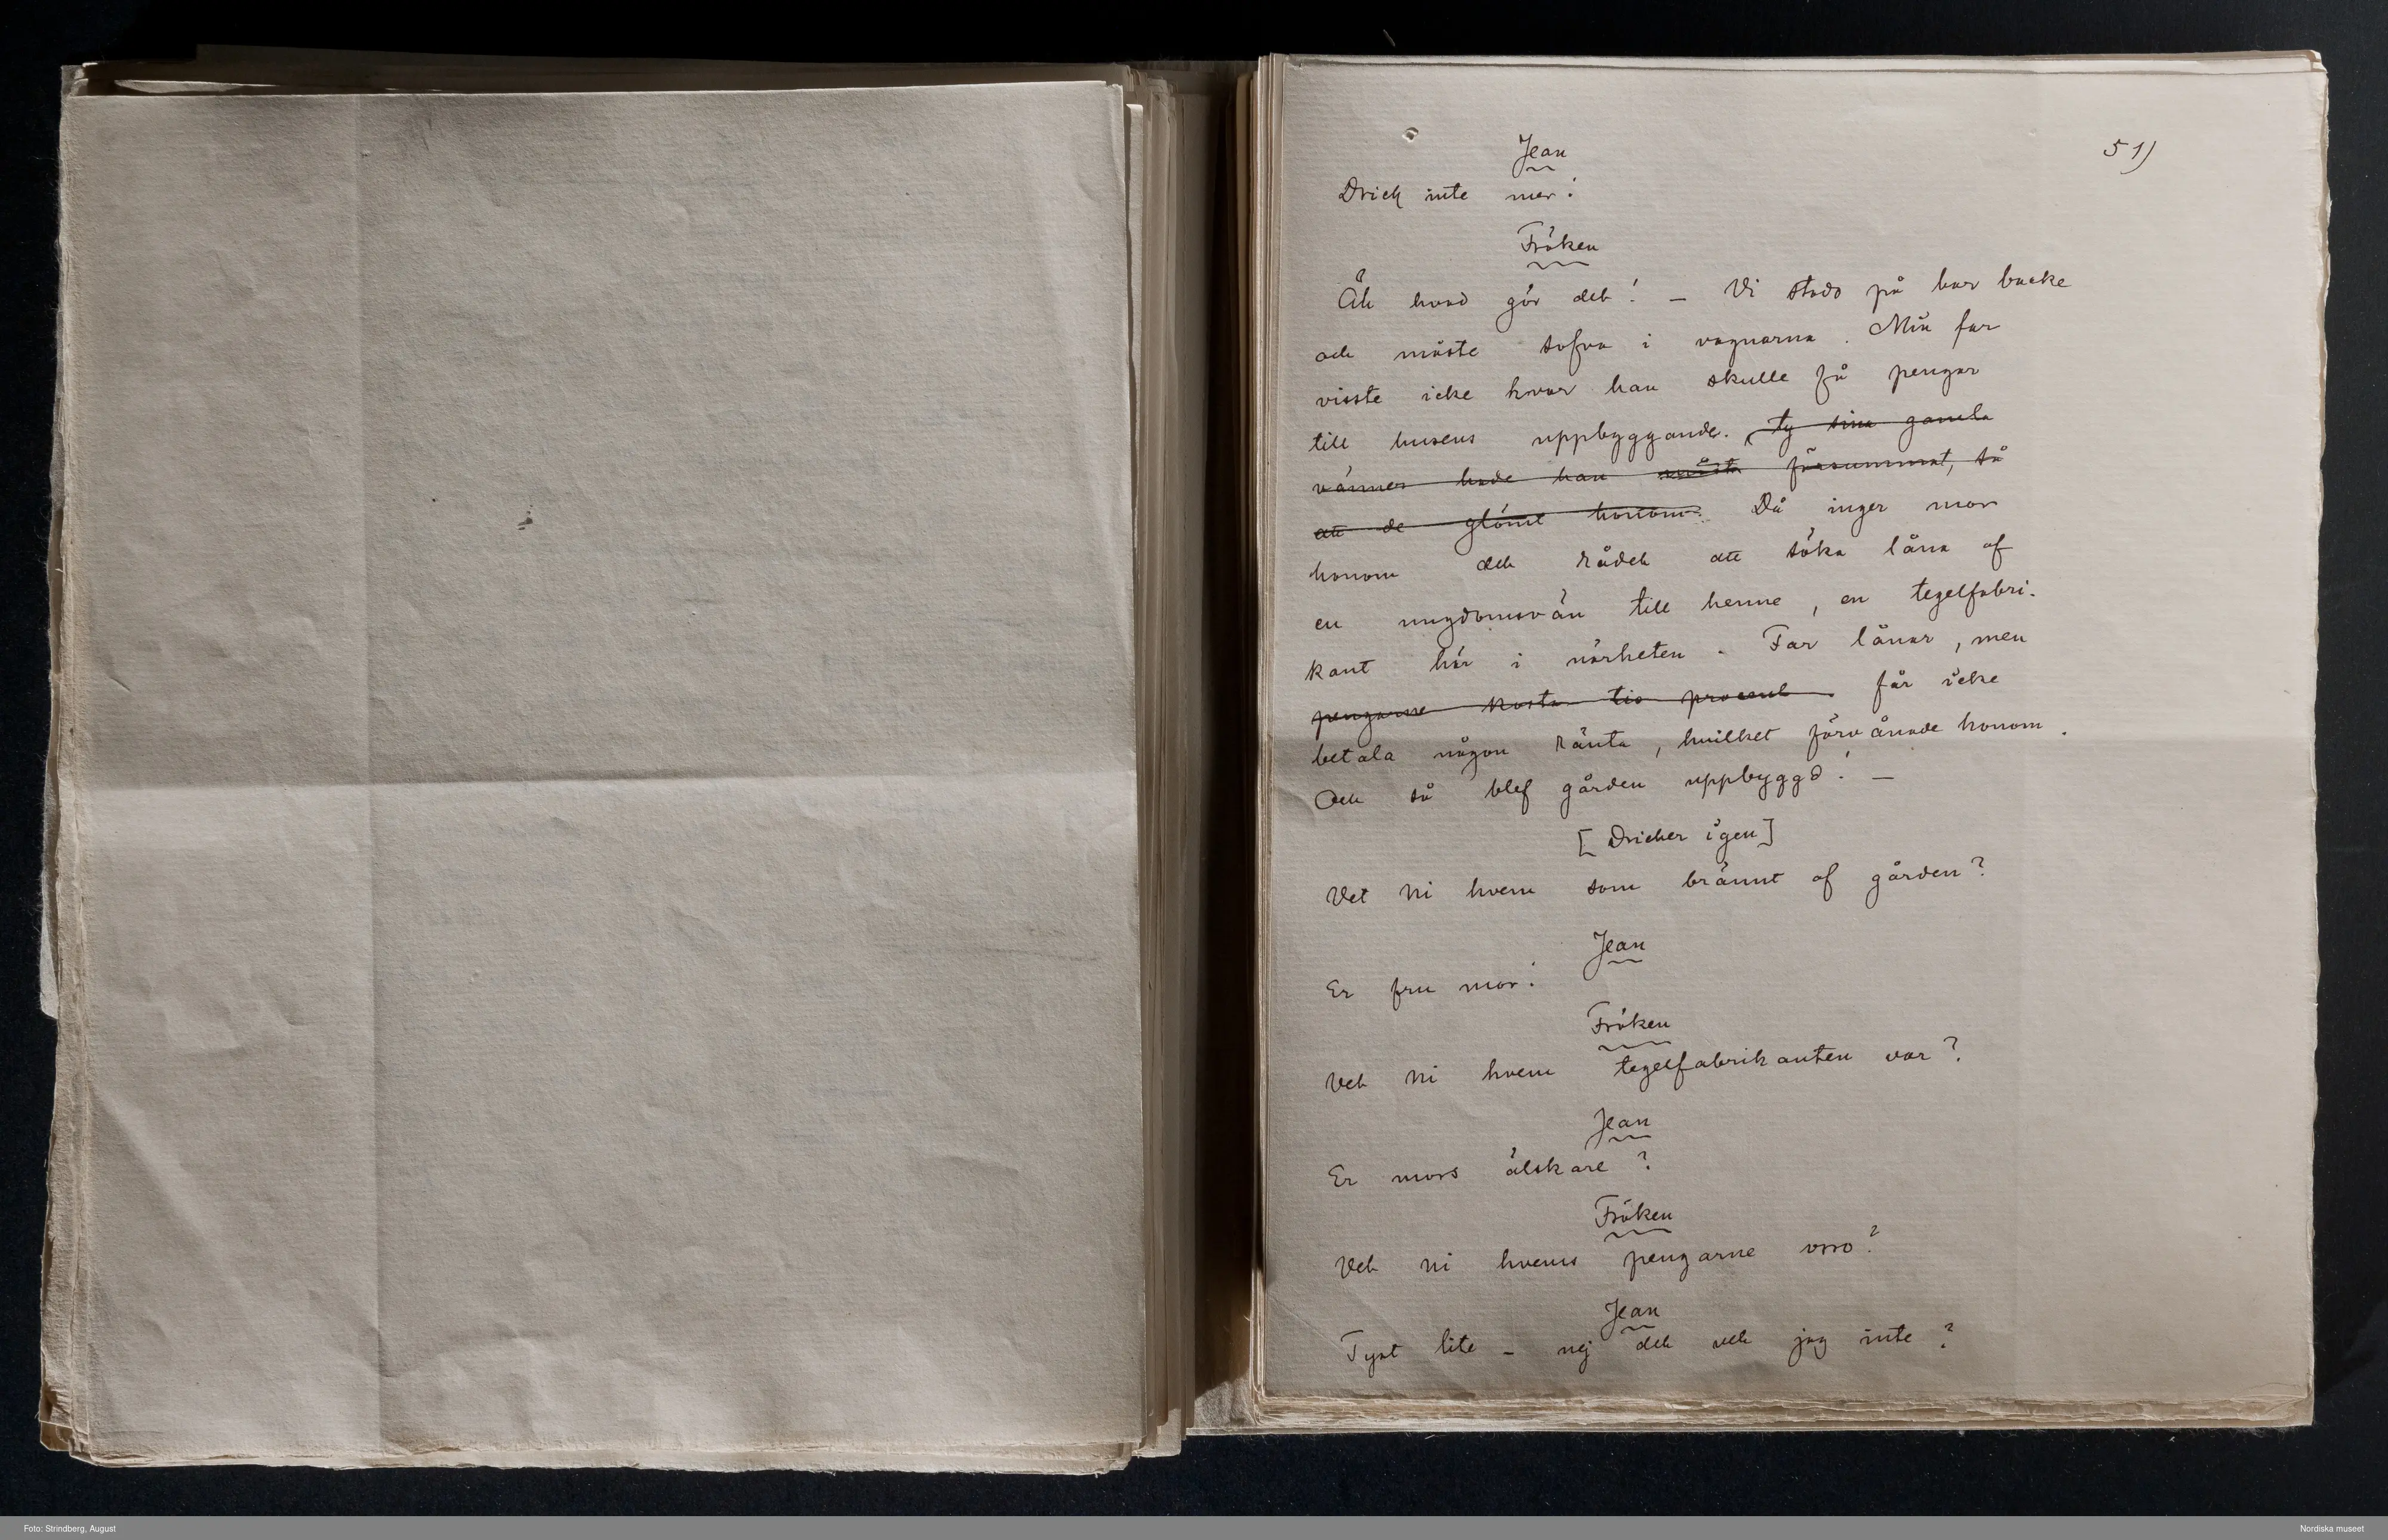 51)
Jean
Drick inte mer!
Fröken
Åh hvad gör det! – Vi stodo på bar backe
och måste sofva i vagnarna. Min far
visste icke hvar han skulle få pengar
till husens uppbyggande. Ty sina gamla
vänner hade han måst försummat, så
att de glömt honom. Då inger mor
honom det rådet att söka låna af
en ungdomsvän till henne, en tegelfabri-
kant här i närheten. Far lånar, men
pengarne kosta tio procent. får icke
betala någon ränta, hvilket förvånade honom.
Och så blef gården uppbyggd! –
[Dricker igen]
Vet Ni hvem som brännt af gården?
Jean
Er fru mor!
Fröken
Vet Ni hvem tegelfabrikanten var?
Jean
Er mors älskare?
Fröken
Vet Ni hvems pengarne voro?
Jean
Tyst lite – nej det vet jag inte?
Foto: Strindberg, August
Nordiska museet